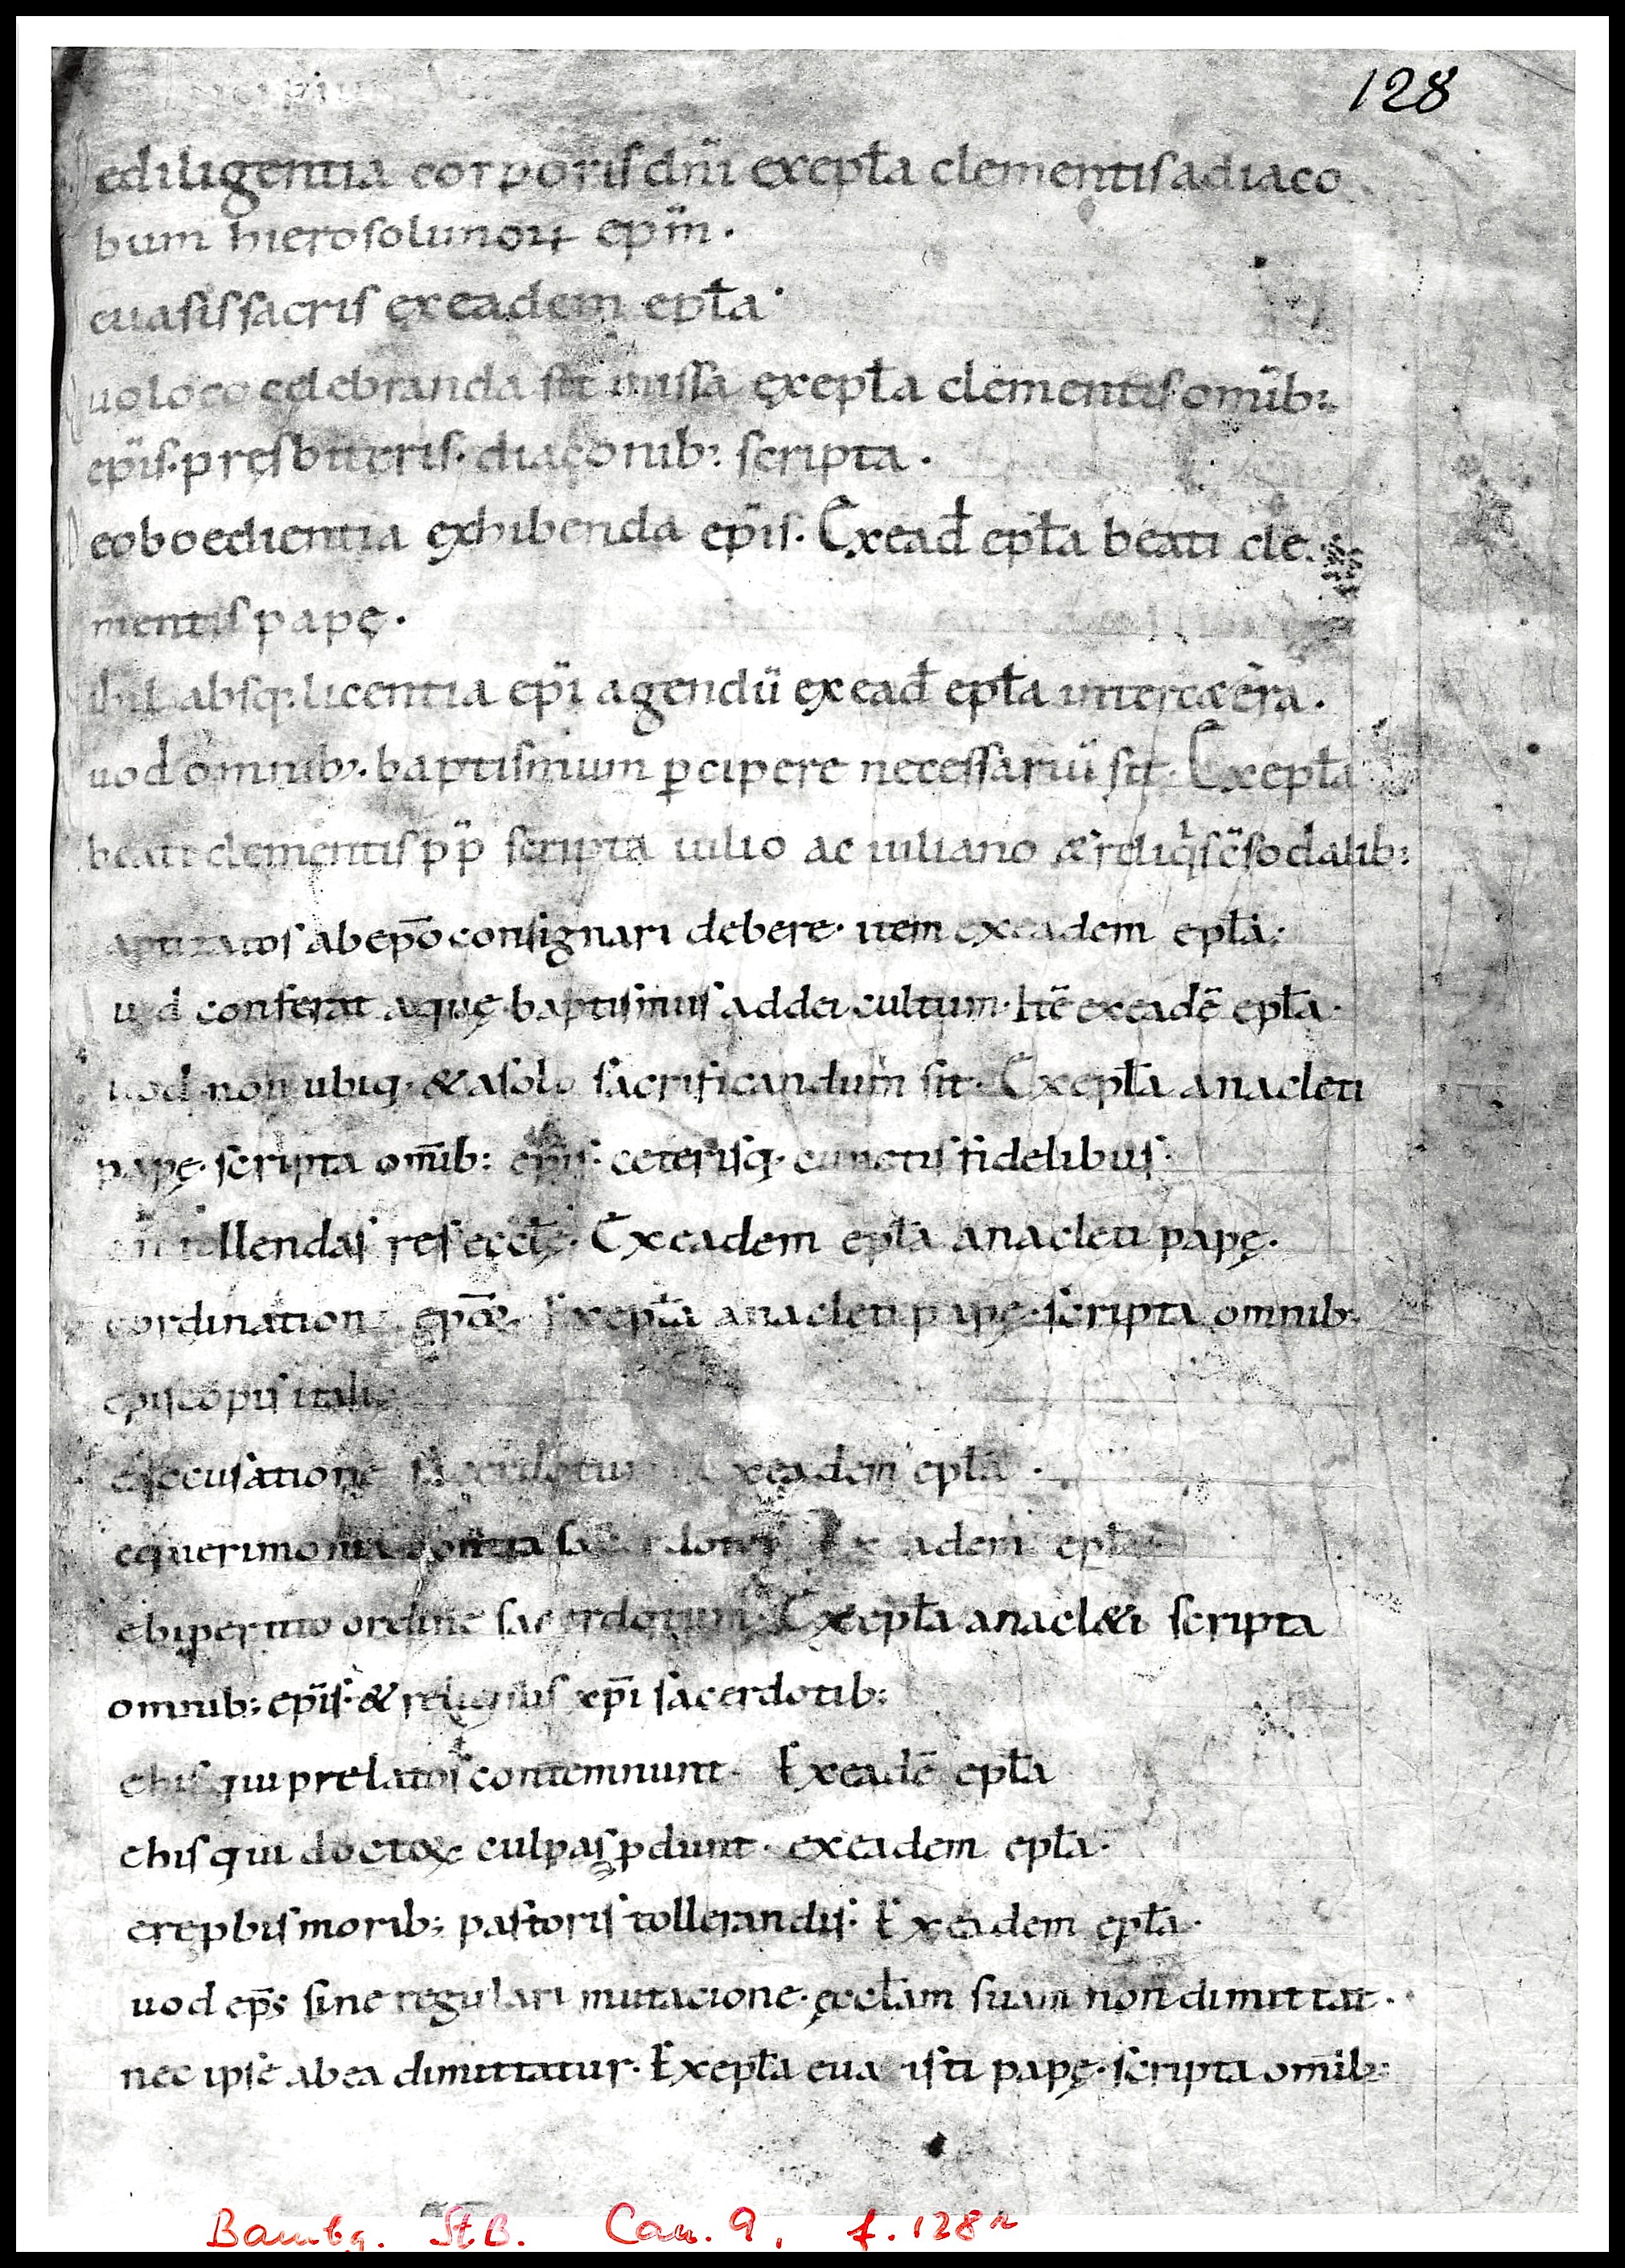 128
ediligentia corporis dn̄i ex epƚa clementis ad iaco
bum hierosolimoꝝ ep̄m.
euasis sacris ex eadem epƚa.
uo loco celebranda sit missa ex epƚa clementis om̄ib:
ep̄is. presbiteris. diaconib: scripta.
eoboedientia exhibenda ep̄is. Ex ead̄ epƚa beati cle
mentis papę.
ihil absq: licentia ep̄i agendū ex ead̄ epƚa inter cęt̄era.
uod omnib; baptismum ꝑcipere necessariū sit. Ex epƚa
beati clementis pp̄ scripta iulio ac iuliano & reliq̇s c̄sodalib:
aptizatos ab ep̄o consignari debere. item ex eadem epƚa.
uid conferat aquę baptismus ad dei cultum. Itē ex eadē epƚa.
uod non ubiq; & a solo sacrificandum sit. Ex epƚa anacleti
papę. scripta om̄ib: ep̄is. ceterisq; cunctis fidelibus.
tollendas res eccƚę. Ex eadem epƚa anacleti papę.
eordinatione ep̄oꝝ. Ex epƚa anacleti papę. scripta omnib:
episcopis italię
eaccusatione sacerdotum Ex eadem epƚa.
equerimonia contra sacerdotes Ex eadem epƚa
ebipertito ordine sacerdotum. Ex epƚa anacl&i scripta
omnib: ep̄is. & reliquis xp̄i sacerdotib:
ehis qui prelatos contemnunt. Ex eadē epƚa
ehis qui doctoꝝ culpas ꝓdunt. ex eadem epƚa.
ereꝓbis morib; pastoris tollerandis. Ex eadem epƚa.
uod ep̄s sine regulari mutacione. ęccƚam suam non dimittat.
nec ipse ab ea dimittatur. Ex epƚa euaristi papę. scripta om̄ib:
Bambg. St.B. Can. 9, f. 128r